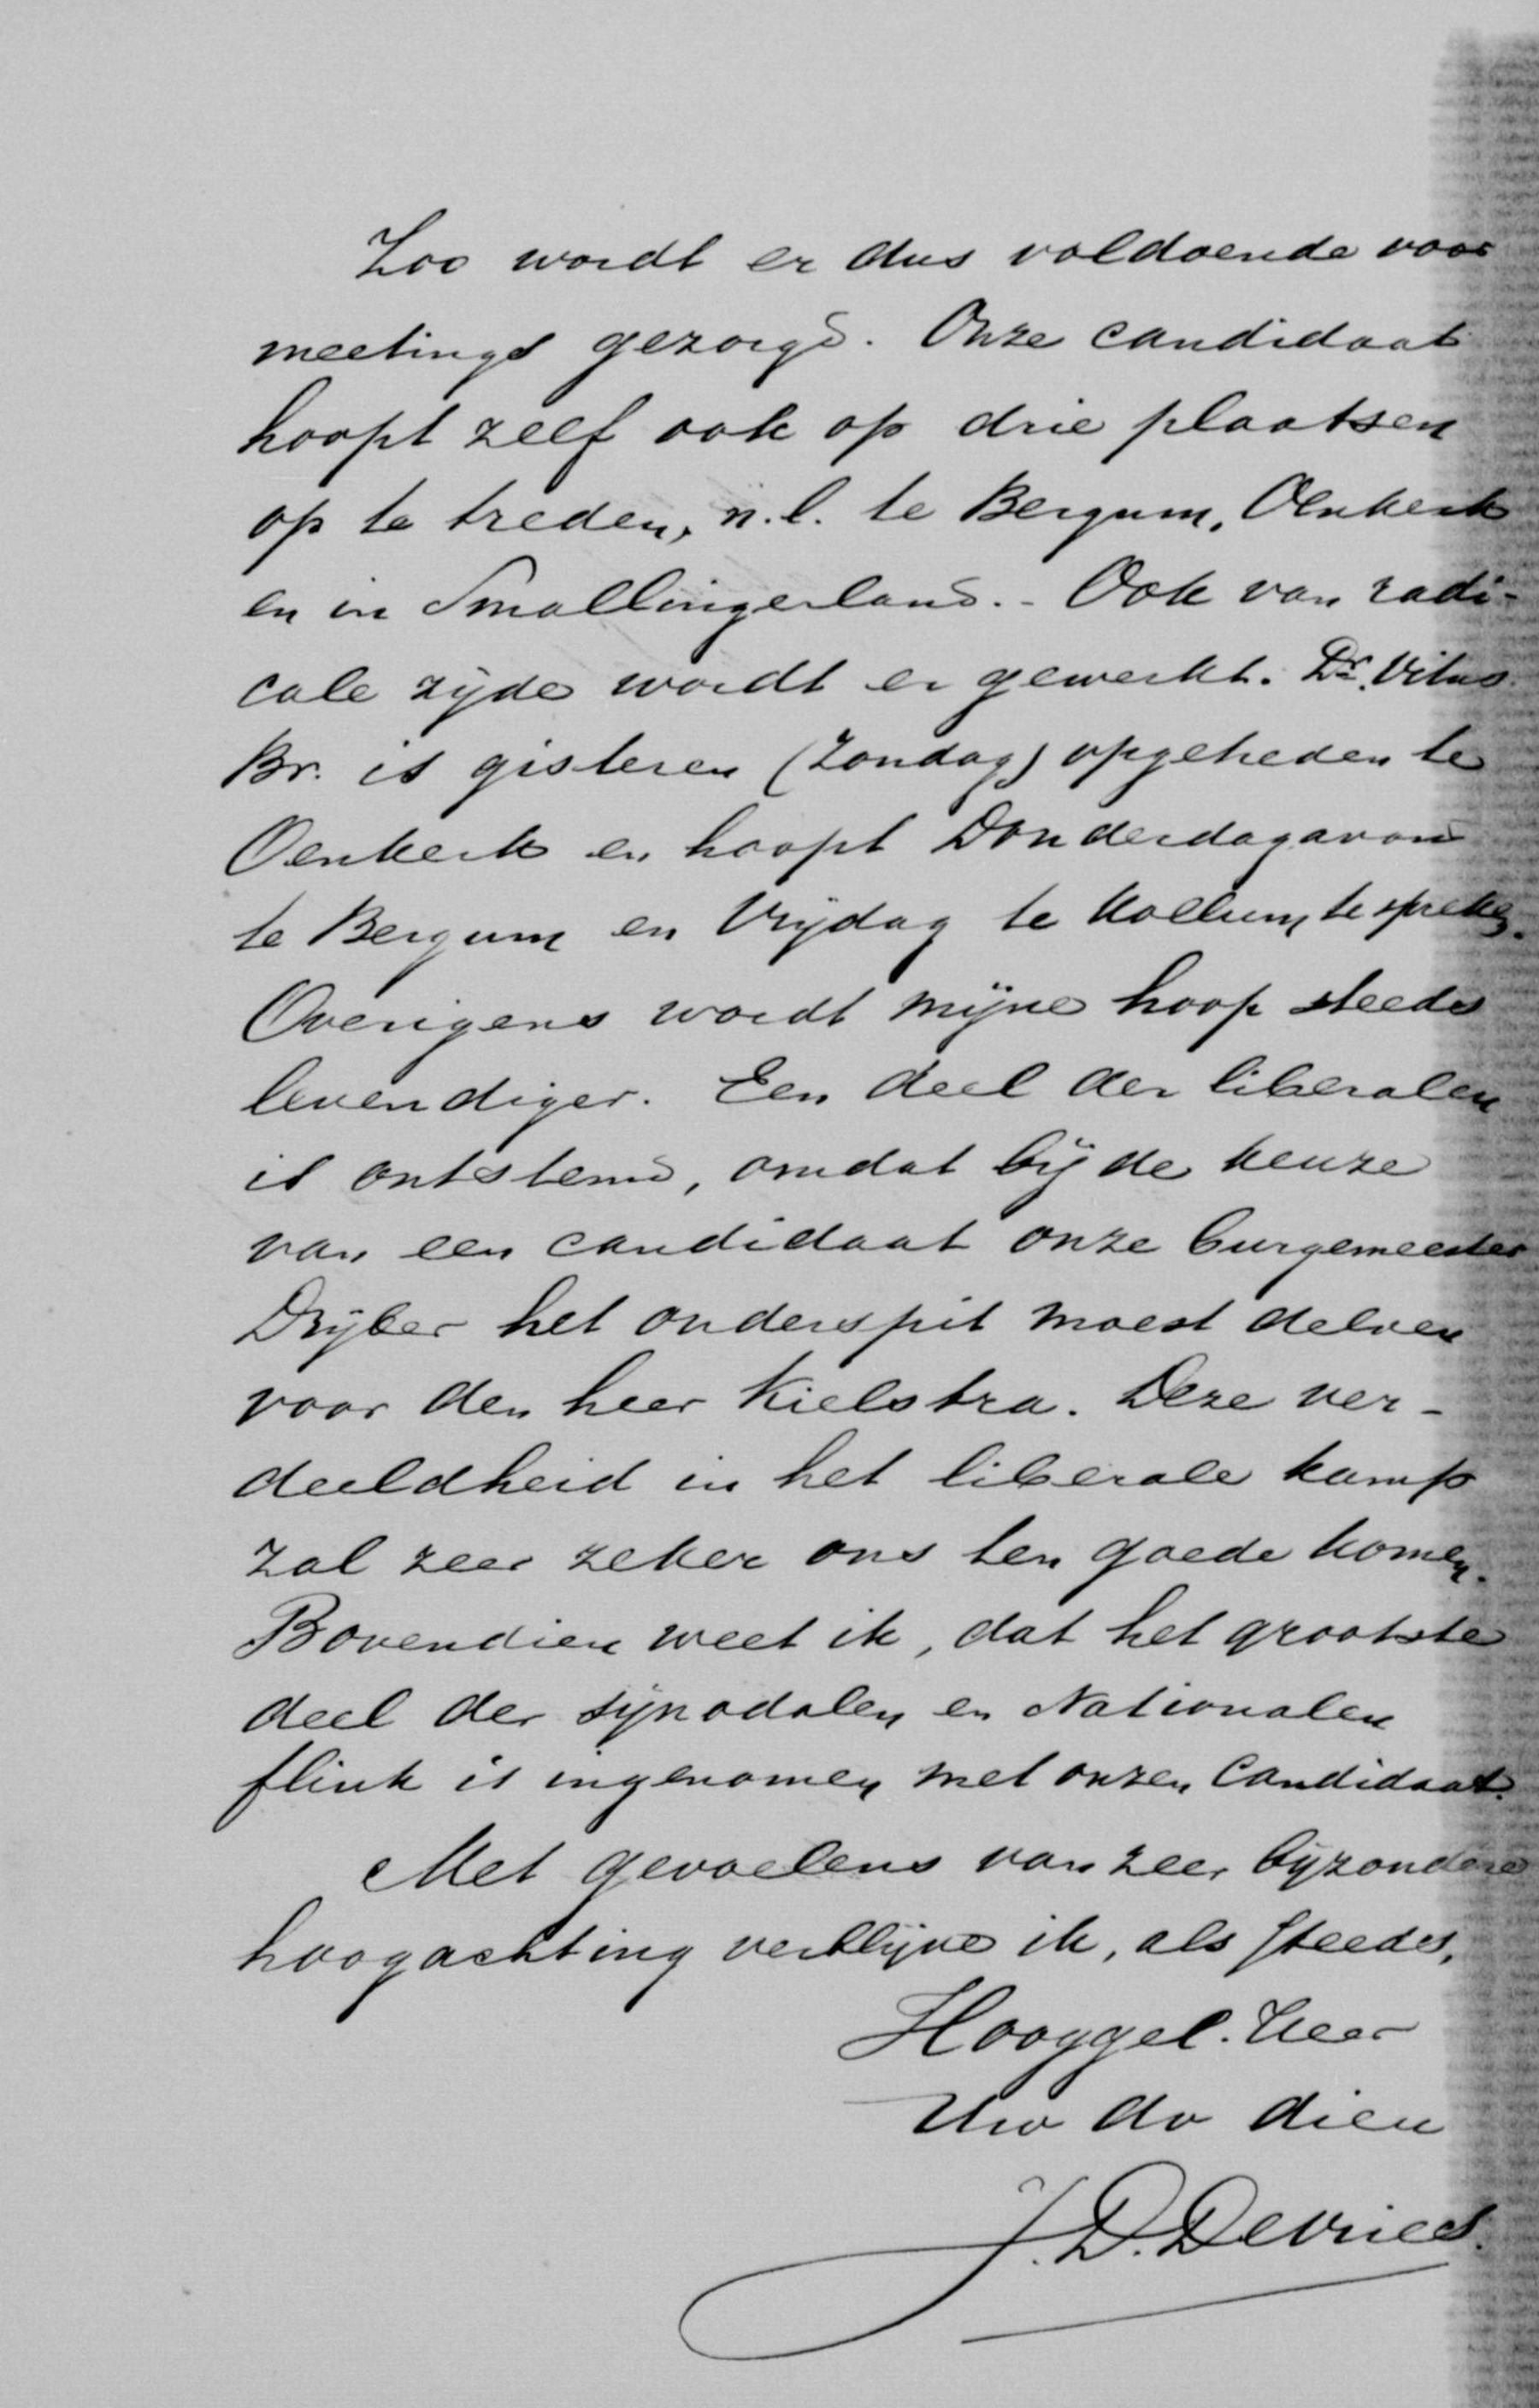 Zoo wordt er dus voldoende voor
meetings gezorgd. Onze candidaat
hoopt zelf ook op drie plaatsen
op te treden, n.l. te Bergum, Oenkerk
en in Smallingerland. - Ook van radi-
cale zijde wordt er gewerkt. Dr. Vitus
Br. is gisteren (Zondag) opgetreden te
Oenkerk en hoopt Donderdagavond
te Bergum en Vrijdag te Kollum te spreken.
Overigens wordt mijne hoop steeds
levendiger. Een deel der liberalen
is ontstemd, omdat bij de keuze
van een candidaat onze burgemeester
Drijber het onderspit moest delven
voor den heer Kielstra. Deze ver-
deeldheid in het liberale kamp
zal zeer zeker ons ten goede komen.
Bovendien weet ik, dat het grootste
deel der synodalen en Nationalen
flink is ingenomen met onzen Candidaat.
Met gevoelens van zeer bijzondere
hoogachting verblijve ik, als steeds,
Hooggel. Heer
Uw dv dien
J. D. De Vries.